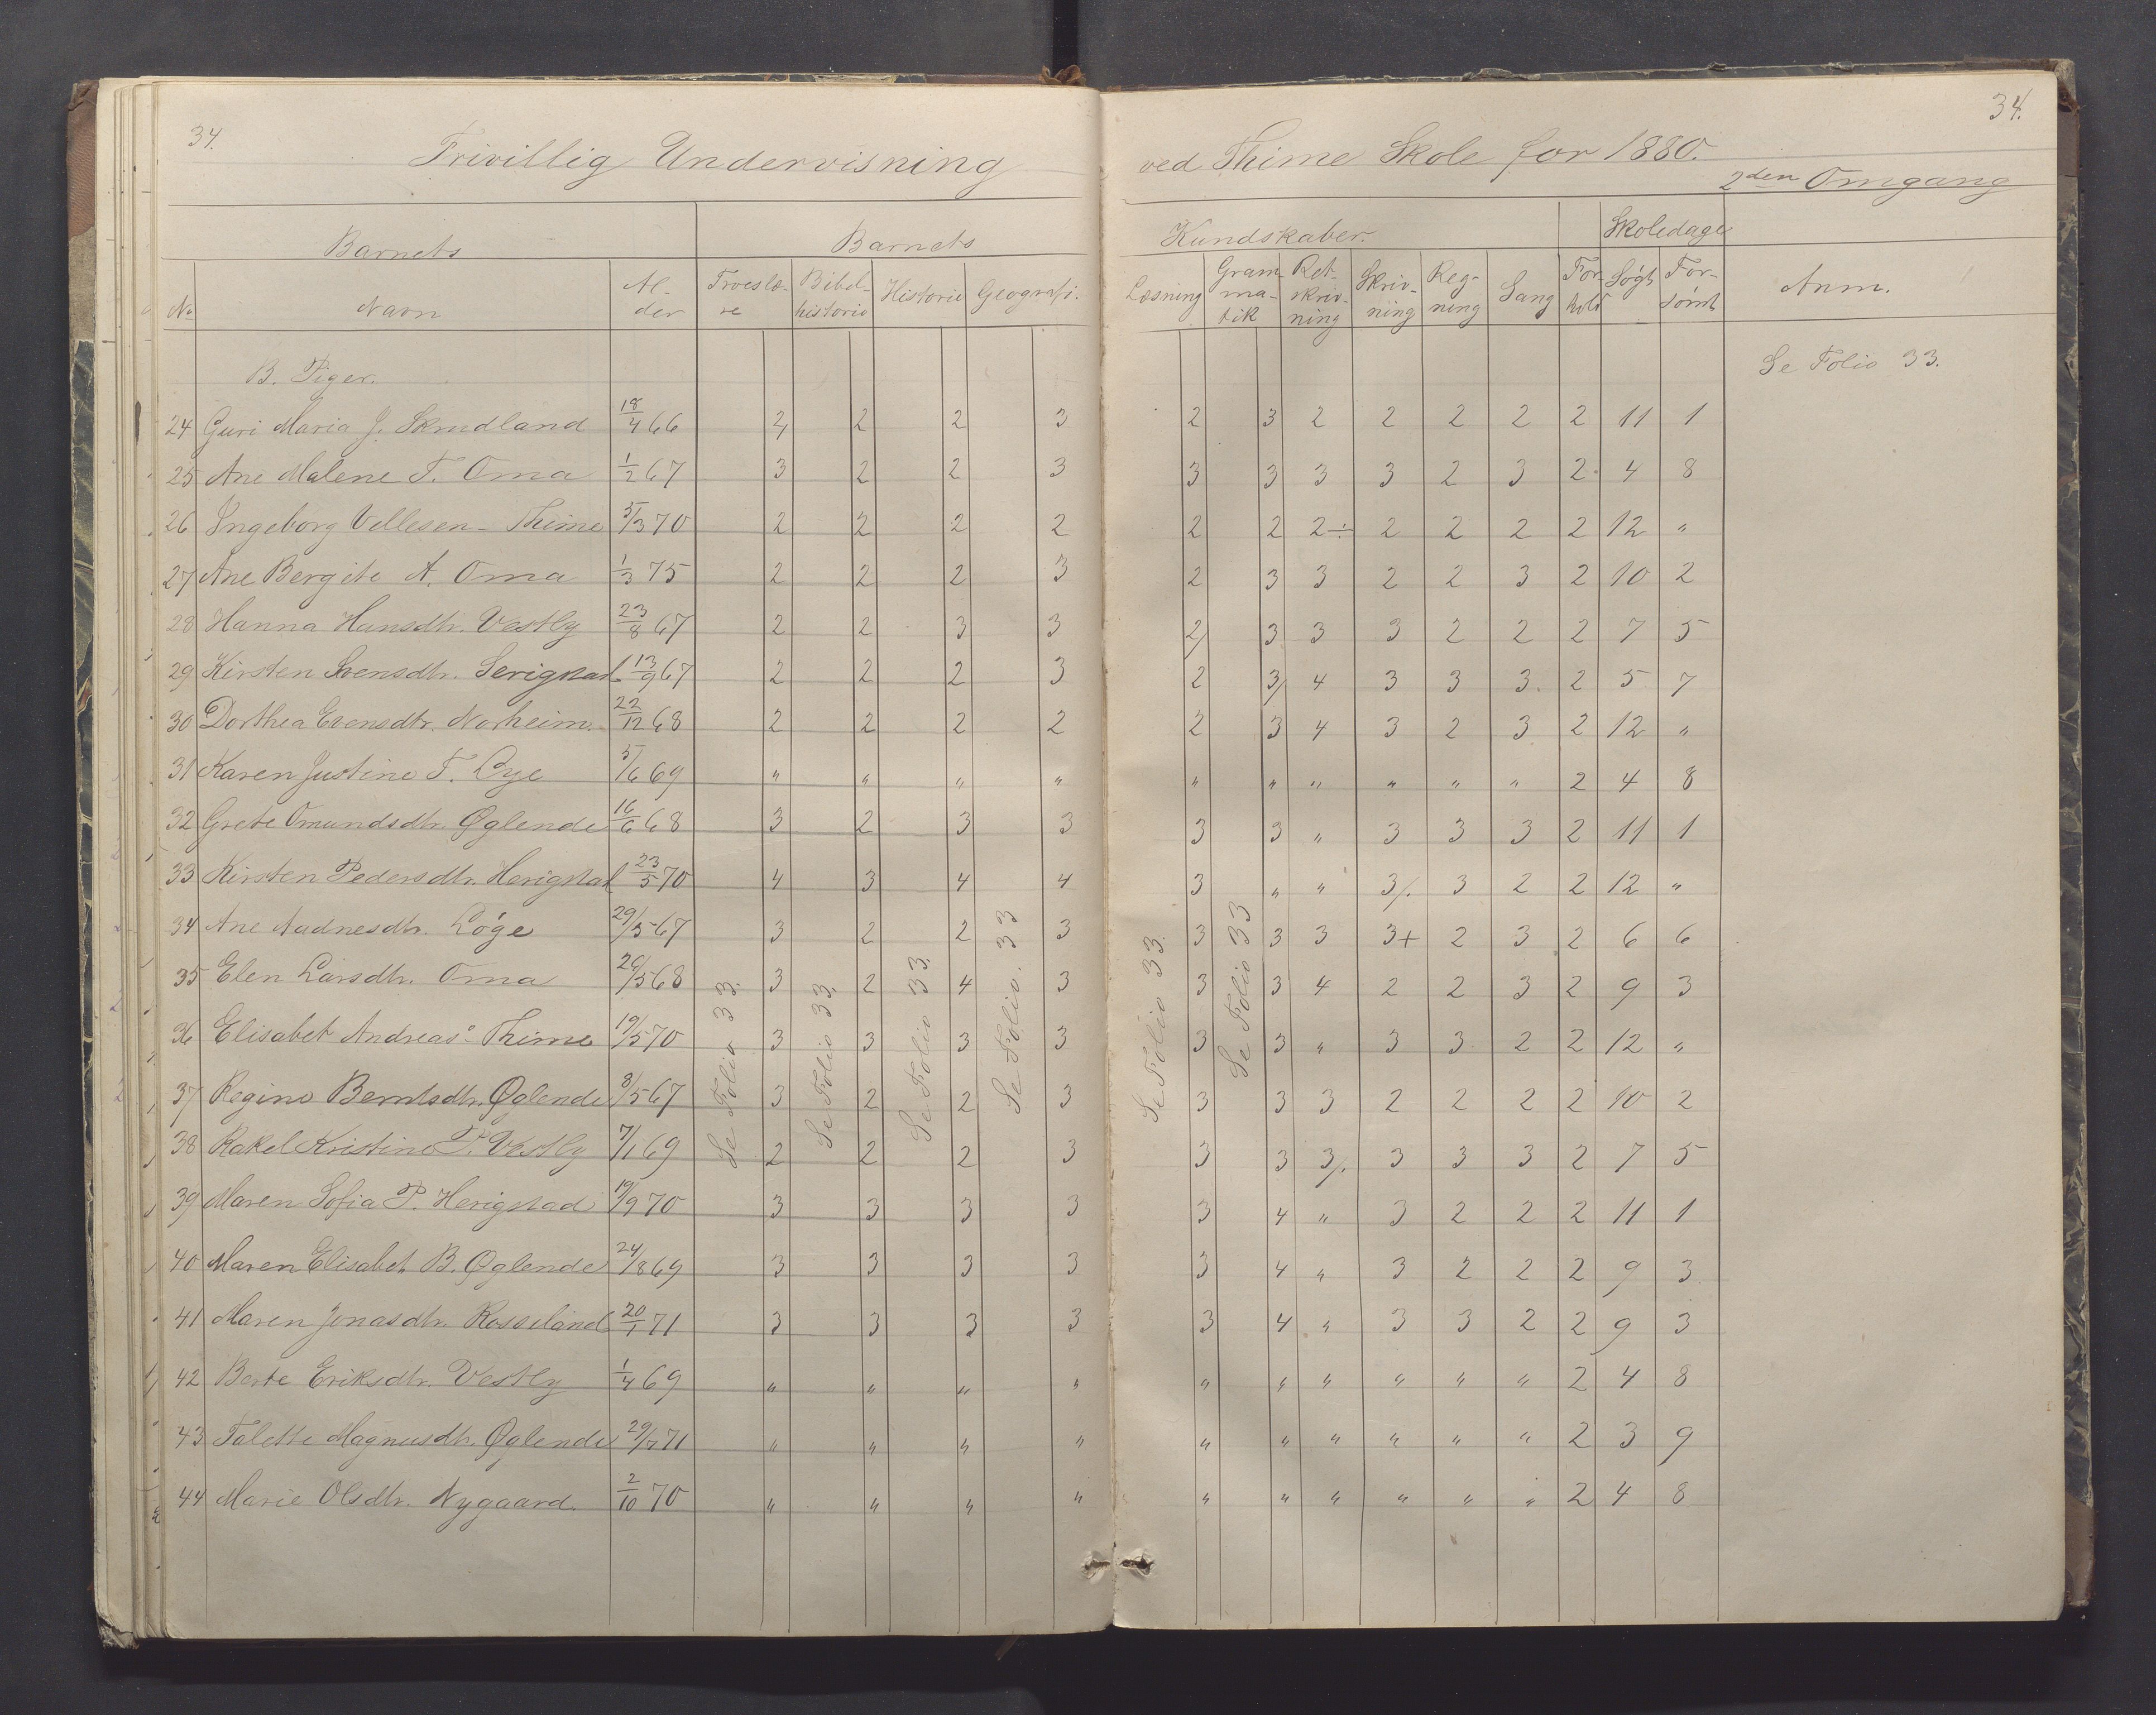 34.
Frivillig Undervisning
ved Thime Skole for 1880.
34.
2den Omgang
Barnets
Barnets
Kundskaber.
Skoledage
No Navn Al-der Troeslæ-re Bibel-historie Historie Geografi. Læsning Gram-ma-tik Ret-skriv-ning Skriv-ning Reg-ning Sang For-hold Søgt For-sømt Anm.
B. Piger.
Se Folio 33.
24 Guri Maria J. Skrudland 18/4 66 2 2 2 3 2 3 2 2 2 2 2 11 1
25 Ane Malene T. Oma 1/2 67 3 2 2 3 3 3 3 3 2 3 2 4 8
26 Ingeborg Vellesen Thime 5/3 70 2 2 2 2 2 2 2÷ 2 2 2 2 12 "
27 Ane Bergite A. Oma 1/3 75 2 2 2 3 2 3 3 2 2 3 2 10 2
28 Hanna Hansdtr. Vestly 23/8 67 2 2 3 3 2/ 3 3 3 2 2 2 7 5
29 Kirsten Svensdtr. Serigstad 13/9 67 2 2 2 3 2 3/ 4 3 3 3 2 5 7
30 Dorthea Evensdtr. Norheim 22/12 68 2 2 2 2 2 3 4 3 2 3 2 12 "
31 Karen Justine T. Lye 5/6 69 " " " " " " " " " " 2 4 8
32 Grete Omundsdtr. Øglende 16/6 68 3 2 3 3 3 3 " 3 3 3 2 11 1
33 Kirsten Pedersdtr. Herigstad 23/5 70 4 3 4 4 3 " " 3/. 3 2 2 12 "
34 Ane Audnesdtr. Løge 29/5 67 3 2 2 3 3 3 3 3+ 2 3 2 6 6
35 Elen Larsdtr. Oma 26/5 68 3 2 4 3 3 3 4 2 2 3 2 9 3
36 Elisabet Andreas: Thime 19/5 70 3 3 3 3 3 3 " 3 3 2 2 12 "
37 Regine Berntsdtr. Øglende 8/5 67 3 2 2 3 3 3 3 2 2 2 2 10 2
38 Rakel Kristine P. Vestly 7/1 69 2 2 2 3 3 3 3/. 3 3 3 2 7 5
39 Maren Sofia P. Herigstad 19/9 70 3 3 3 3 3 4 " 3 2 2 2 11 1
40 Maren Elisabet B. Øglende 24/8 69 3 3 3 3 3 4 " 3 2 2 2 9 3
41 Maren Jonasdtr. Rosseland 20/1 71 3 3 3 3 3 4 " 3 3 2 2 9 3
42 Berte Eriksdtr. Vestly 1/4 69 " " " " " " " " " " 2 4 8
43 Talette Magnusdtr. Øglende 29/7 71 " " " " " " " " " " 2 3 9
44 Marie Olsdtr. Nygaard. 2/10 70 " " " " " " " " " " 2 4 8
Se Folio 33.
Se Folio 33.
Se Folio 33.
Se Folio. 33
Se Folio 33.
Se Folio 33